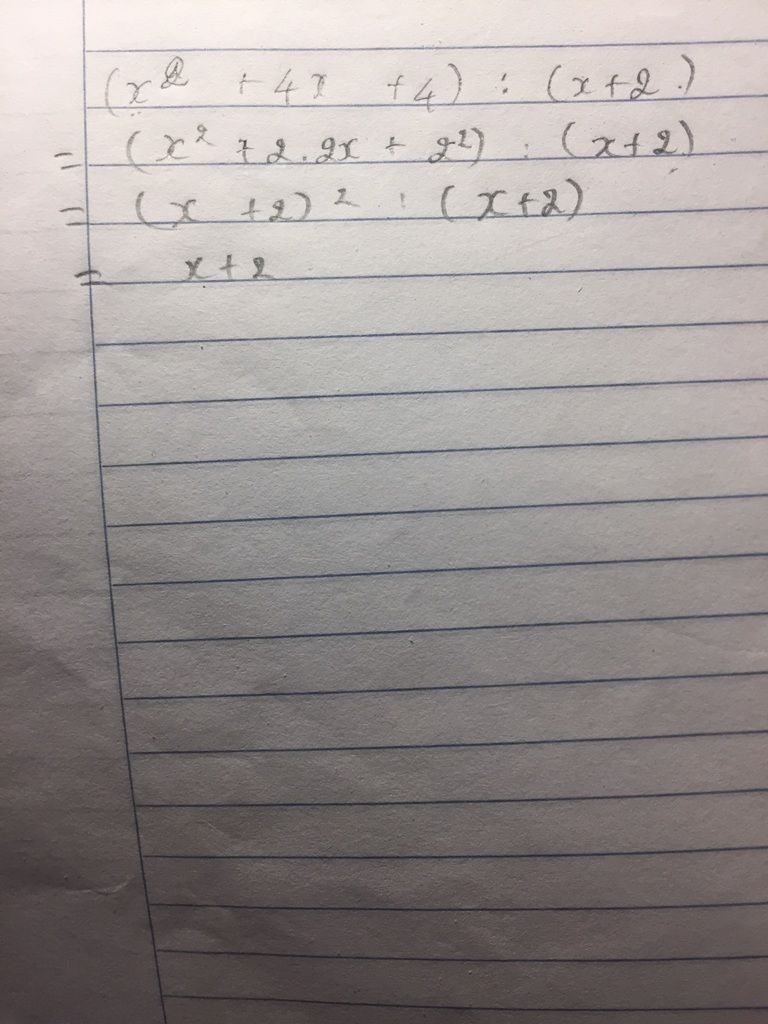 (x² + 4x + 4) : (x+2)
= (x² + 2.2x + 2²) : (x+2)
= (x + 2)² : (x+2)
= x + 2